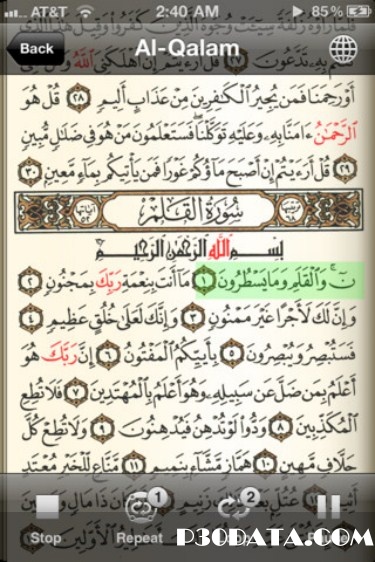 AT&T 2:40 AM 85%
Back Al-Qalam
أَوْرَحِمَنَا فَمَن يُجِيرُ ٱلْكَٰفِرِينَ مِنْ عَذَابٍ أَلِيمٍ ٢٨ قُلْ هُوَ
ٱلرَّحْمَٰنُ ءَامَنَّا بِهِۦ وَعَلَيْهِ تَوَكَّلْنَا ۖ فَسَتَعْلَمُونَ مَنْ هُوَ فِى ضَلَٰلٍ مُّبِينٍ
٢٩ قُلْ أَرَءَيْتُمْ إِنْ أَصْبَحَ مَآؤُكُمْ غَوْرًا فَمَن يَأْتِيكُم بِمَآءٍ مَّعِينٍۭ ٣٠
سُورَةُ الْقَلَمِ
بِسْمِ ٱللَّهِ ٱلرَّحْمَٰنِ ٱلرَّحِيمِ
نٓ ۚ وَٱلْقَلَمِ وَمَا يَسْطُرُونَ ١ مَآ أَنتَ بِنِعْمَةِ رَبِّكَ بِمَجْنُونٍ ٢
وَإِنَّ لَكَ لَأَجْرًا غَيْرَ مَمْنُونٍ ٣ وَإِنَّكَ لَعَلَىٰ خُلُقٍ عَظِيمٍ ٤
فَسَتُبْصِرُ وَيُبْصِرُونَ ٥ بِأَييِّكُمُ ٱلْمَفْتُونُ ٦ إِنَّ رَبَّكَ هُوَ
أَعْلَمُ بِمَن ضَلَّ عَن سَبِيلِهِۦ وَهُوَ أَعْلَمُ بِٱلْمُهْتَدِينَ ٧ فَلَا تُطِعِ
ٱلْمُكَذِّبِينَ ٨ وَدُّوا۟ لَوْ تُدْهِنُ فَيُدْهِنُونَ ٩ وَلَا تُطِعْ كُلَّ
حَلَّافٍ مَّهِينٍ ١٠ هَمَّازٍ مَّشَّآءٍۭ بِنَمِيمٍ ١١ مَّنَّاعٍ لِّلْخَيْرِ مُعْتَدٍ
1 2
Stop Repeat
P30DATA.COM